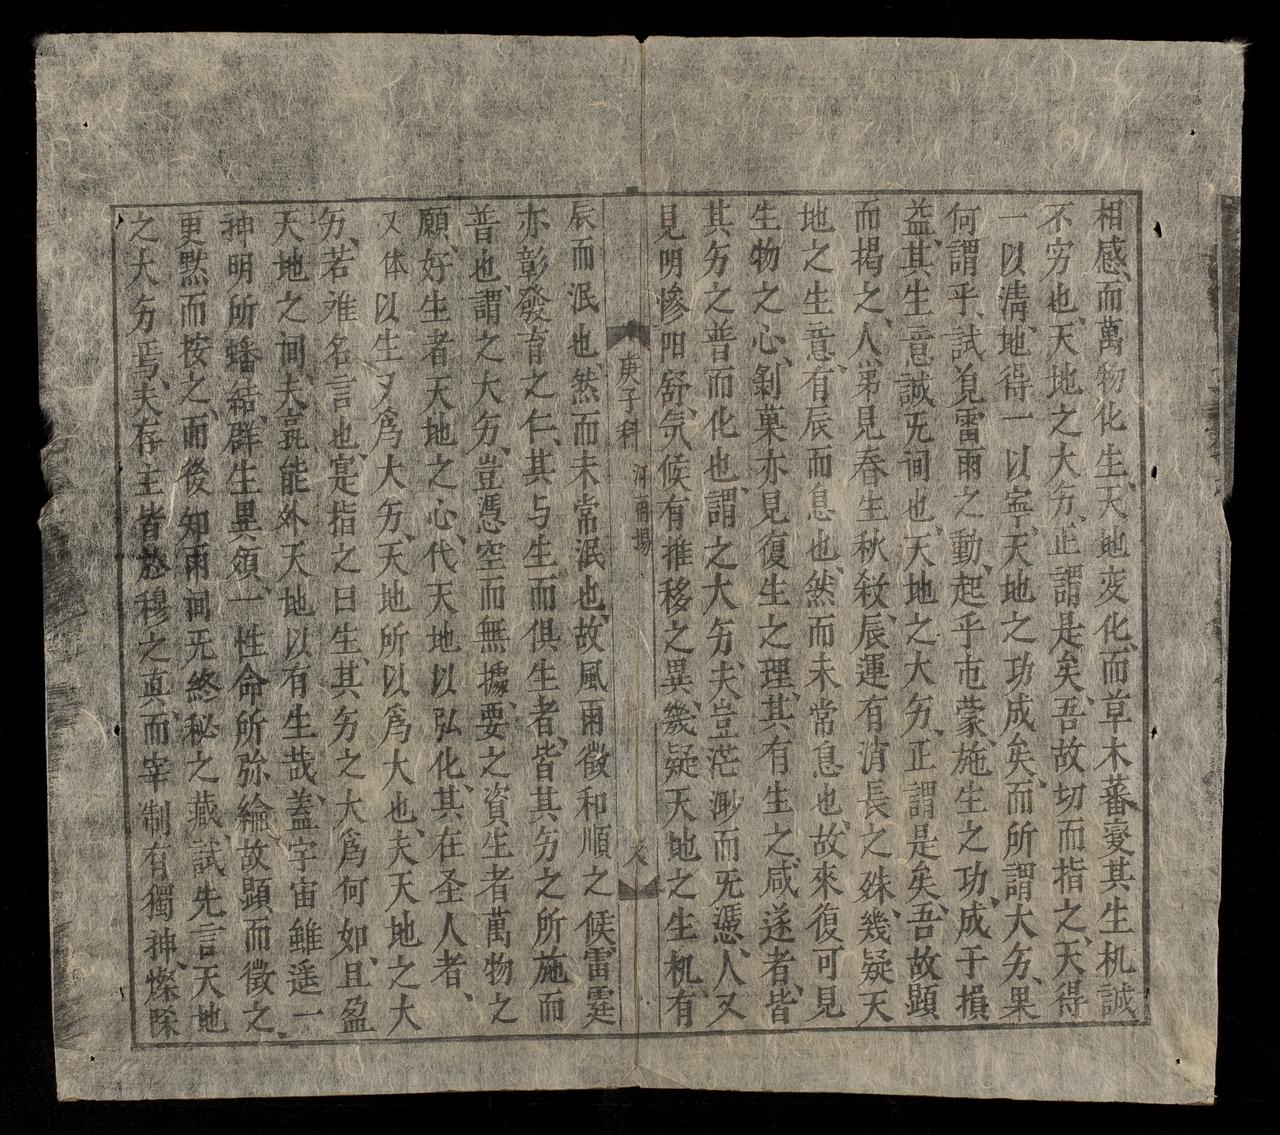 相感、而萬物化生、天地变化、而草木蕃、爰其生机誠
不穷也、天地之大德、正謂是矣、吾故切而指之、天得
一以清、地得一以寍、天地之功成矣、而所謂大德、果
何謂乎、試見雷雨之動、起乎屯蒙、施生之功、成于損
益、其生意誠无间也、天地之大德、正謂是矣、吾故顕
而揭之、人弟見春生秋殺、辰運有消長之殊、幾疑天
地之生意、有辰而息也、然而未常息也、故來復可見
生物之心、剝菓亦見復生之理、其有生之咸遂者、皆
其德之普而化也、謂之大德、夫豈茫渺而无憑、人又
見明慘阳舒、気候有推移之異、幾疑天地之生机、有
庚子科 河南場
辰而泯也、然而未常泯也、故風雨徵和順之候、雷霆
亦彰發育之仁、其与生而俱生者、皆其德之所施而
普也、謂之大德、豈憑空而無據、要之資生者萬物之
願、好生者天地之心、代天地以弘化、其在圣人者、
又体以生又爲大德、天地所以爲大也、夫天地之大
德、若难名言也、寔指之曰生、其德之大爲何如、且盈
天地之间、夫孰能外天地以有生哉、蓋宇宙雖遥一
神明所蟠結、群生異類、一性命所弥綸、故顕而徵之、
更黙而按之、而後知两间无終秘之藏、試先言天地
之大德焉、夫存主皆於穆之真、而宰制有獨神、燦陈